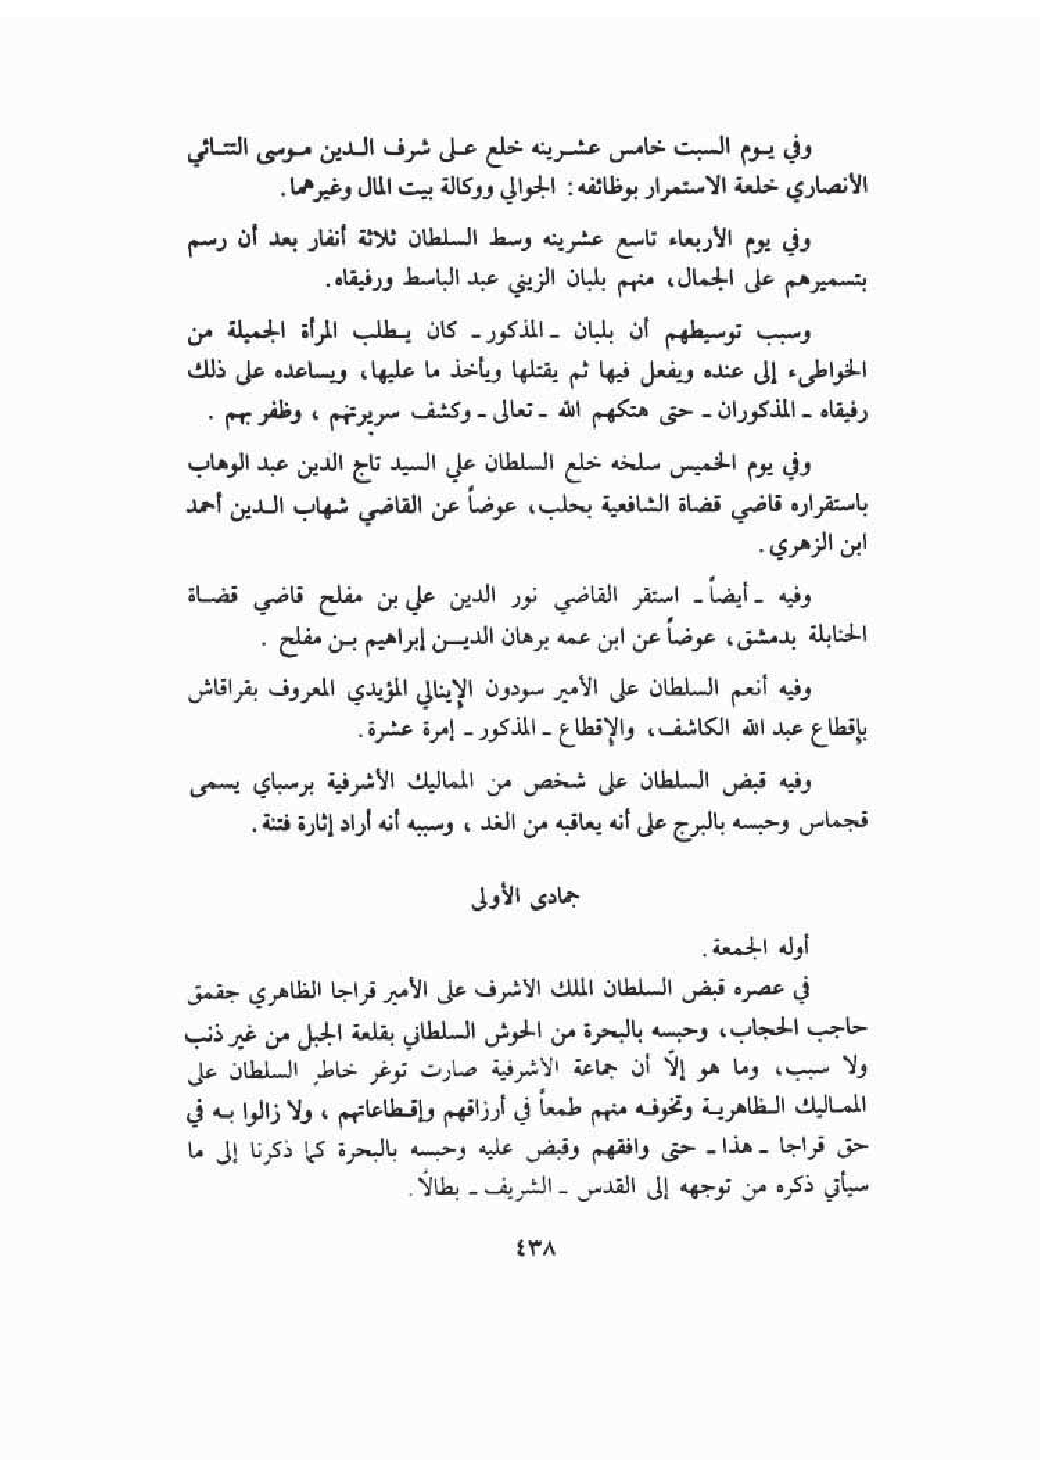 وفي يـوم السبت خامس عشـرينه خلع عـلى شرف الـدين مـوسى التتـائي
الأنصاري خلعة الاستمرار بوظائفه : الجوالي ووكالة بيت المال وغيرهما .
وفي يوم الأربعاء تاسع عشرينه وسط السلطان ثلاثة أنفار بعد أن رسم
بتسميرهم على الجمال ، منهم بلبان الزيني عبد الباسط ورفيقاه .
وسبب توسيطهم أن بلبان - المذكور - كان يطلب المرأة الجميلة من
الخواطىء إلى عنده ويفعل فيها ثم يقتلها ويأخذ ما عليها ، ويساعده على ذلك
رفيقاه - المذكوران - حتى هتكهم الله - تعالى - وكشف سريرتهم ، وظفر بهم .
وفي يوم الخميس سلخه خلع السلطان علي السيد تاج الدين عبد الوهاب
باستقراره قاضي قضاة الشافعية بحلب ، عوضاً عن القاضي شهاب الـدين أحمد
ابن الزهري .
وفيه - أيضاً - استقر القاضي نور الدين علي بن مفلح قاضي قضـاة
الحنابلة بدمشق ، عوضاً عن ابن عمه برهان الديـن إبراهيم بـن مفلح .
وفيه أنعم السلطان على الأمير سودون الإينالي المؤيدي المعروف بقراقاش
بإقطاع عبد الله الكاشف ، والإقطاع - المذكور - إمرة عشرة .
وفيه قبض السلطان على شخص من المماليك الأشرفية برسباي يسمى
قجماس وحبسه بالبرج على أنه يعاقبه من الغد ، وسببه أنه أراد إثارة فتنة .
جمادى الأولى
أوله الجمعة .
في عصره قبض السلطان الملك الاشرف على الأمير قراجا الظاهري جقمق
حاجب الحجاب ، وحبسه بالبحرة من الحوش السلطاني بقلعة الجبل من غير ذنب
ولا سبب ، وما هو إلّا أن جماعة الاشرفية صارت توغر خاطر السلطان على
الممـاليك الـظاهريـة وتخوفـه منهم طمعاً في أرزاقهم وإقـطاعاتهم ، ولا زالوا بـه في
حق قراجا - هذا - حتى وافقهم وقبض عليه وحبسه بالبحرة كما ذكرنا إلى ما
سيأتي ذكره من توجهه إلى القدس - الشريف - بطالًا .
٤٣٨